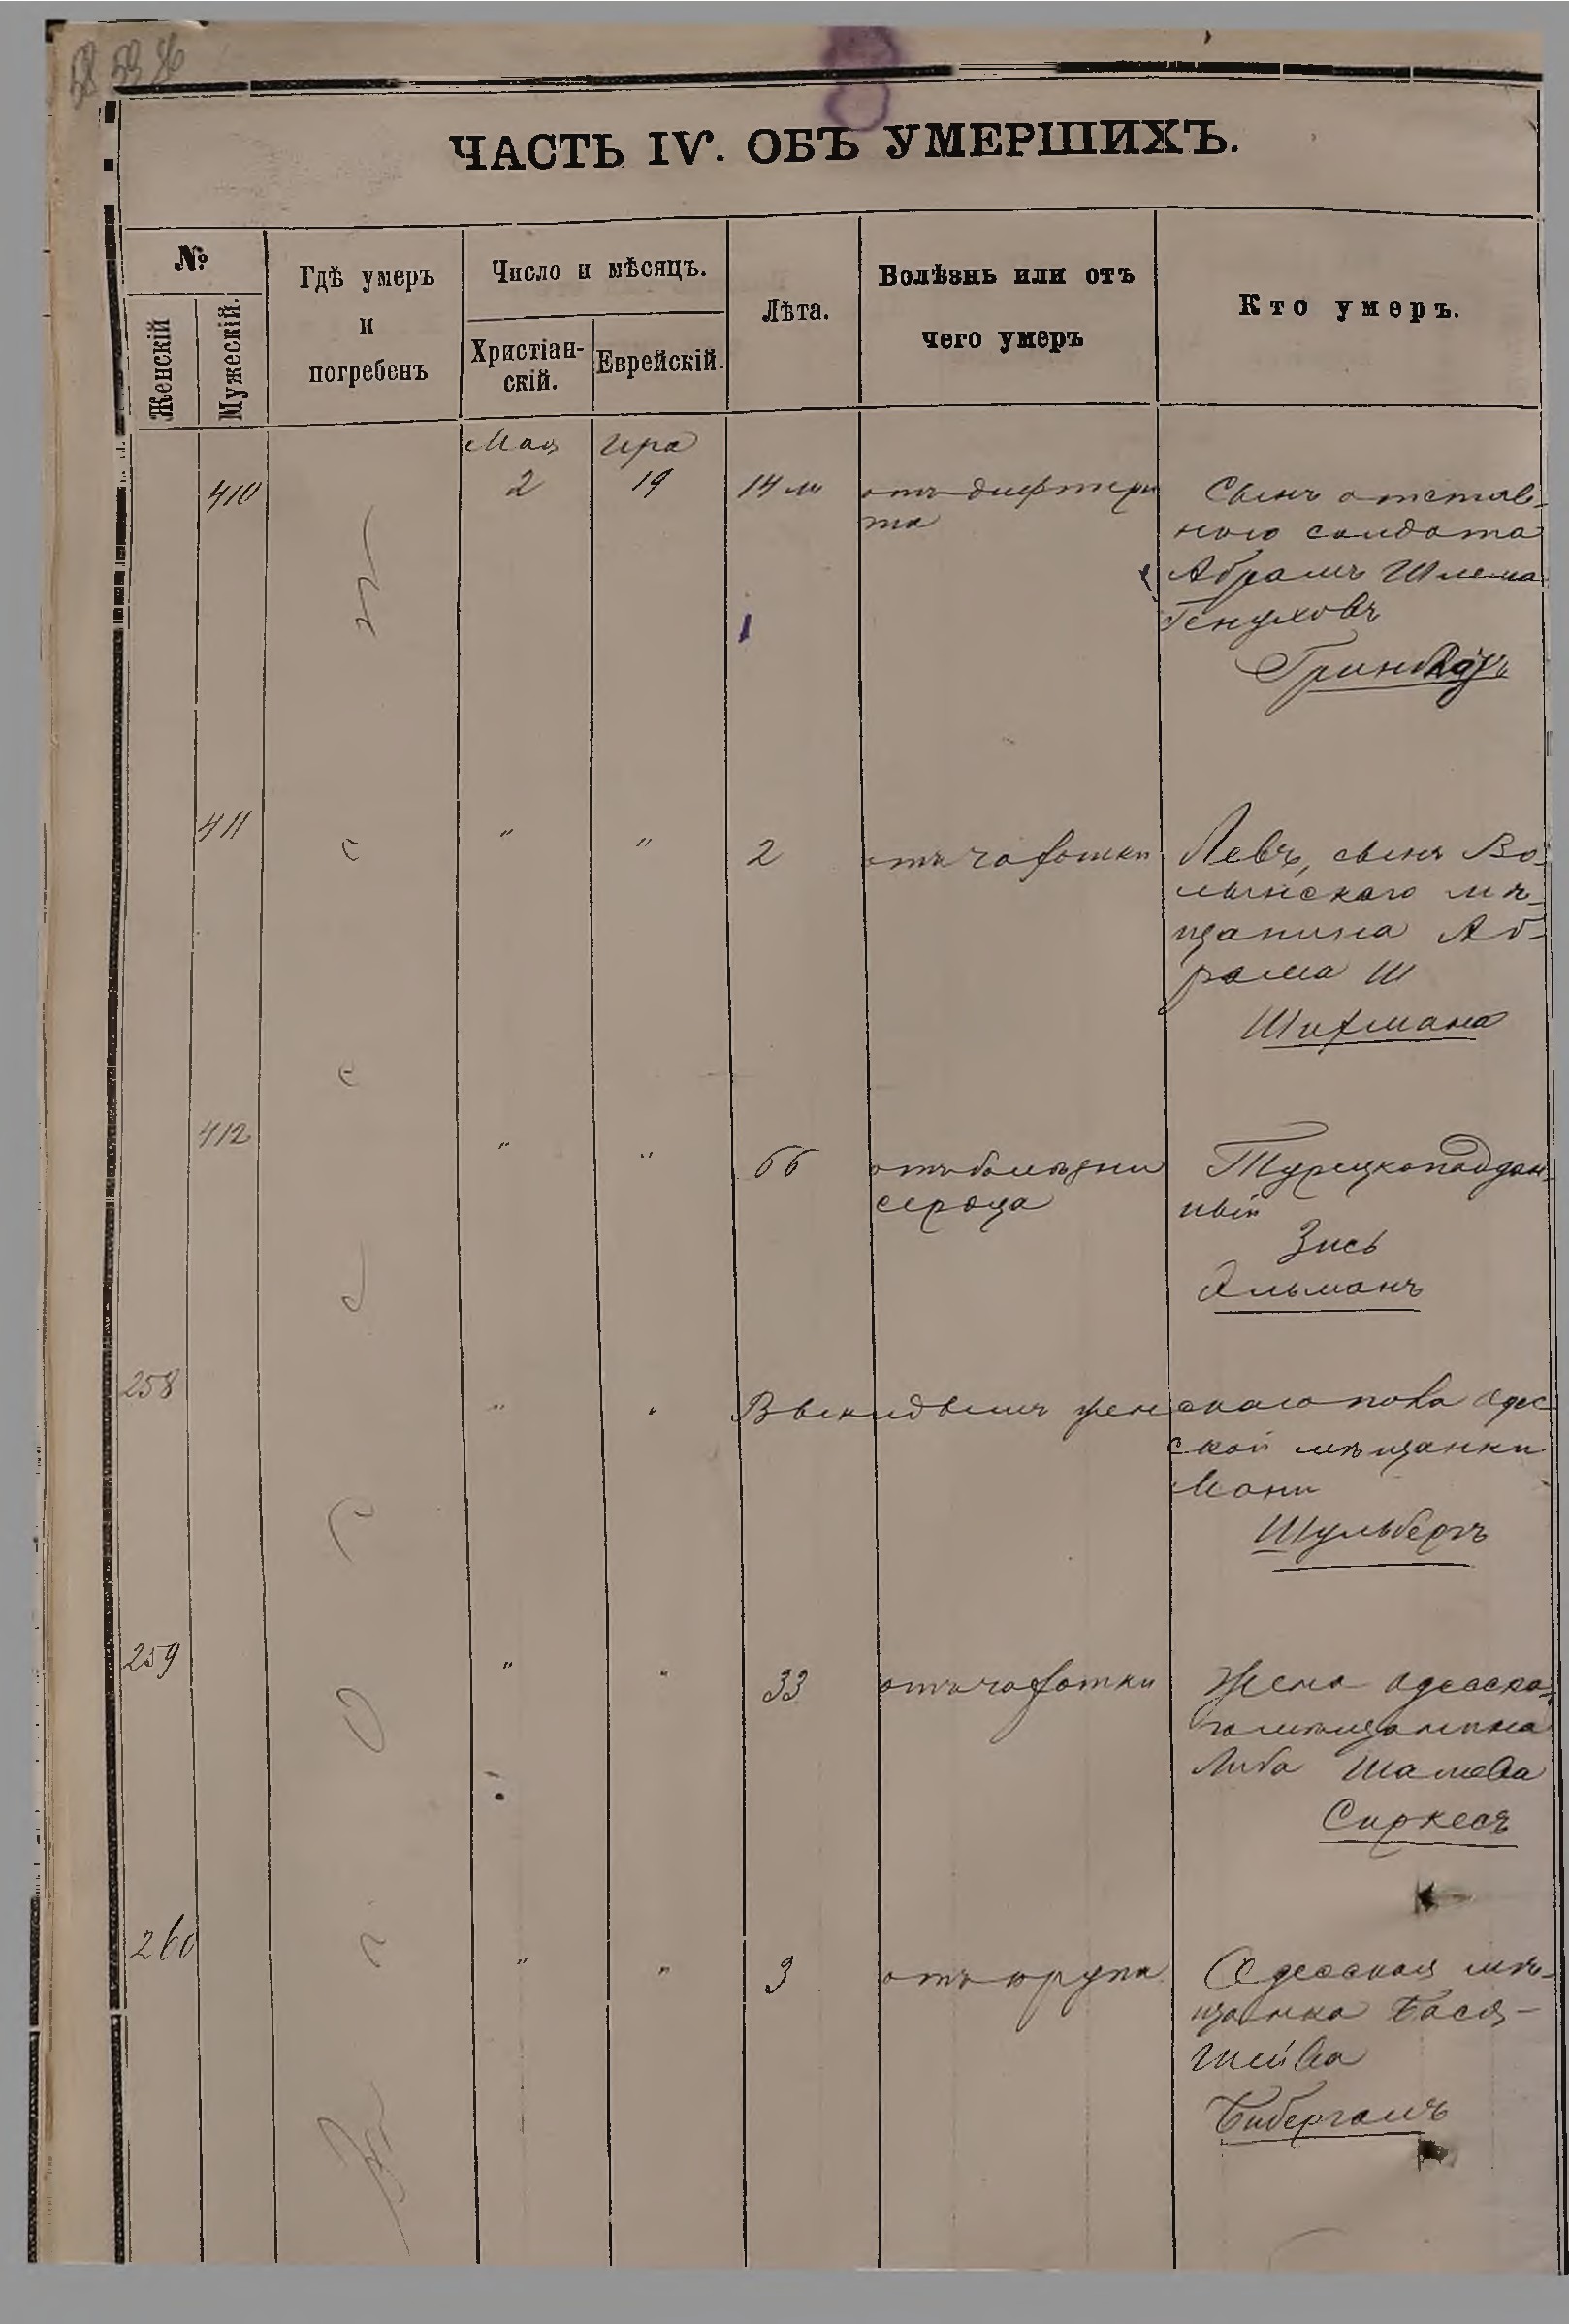 ЧАСТЬ IV. ОБЪ УМЕРШИХЪ.
№
Женскій
Мужескій.
Гдѣ умеръ
и
погребенъ
Число и мѣсяцъ.
Христіан-
скій.
Еврейскій.
Лѣта.
Болѣзнь или отъ
чего умеръ
Кто умеръ.
Мая Ира
410 2 19 14 отъ дифтери
та
Сынъ отстав-
ного солдата
Абрамъ Шлема
Генуховъ
411 " " 2 отъ чахотки Левъ, сынъ Во-
лынскаго мѣ-
щанина Аб-
рама Ш
Шихмана
412 " " 66 отъ болѣзни Турецкоподдан-
сердца ный
Зись
Альманъ
258 " " Выкидышъ женскаго пола Одес
ской мѣщанки
Мани
Шульбергъ
259 " " 33 отъ чахотки Жена одесска-
го мѣщанина
Либа
Сиркесъ
260 " " 3 отъ крупа Одесская мѣ-
щанка Бася-
Шейва
Бибергалъ